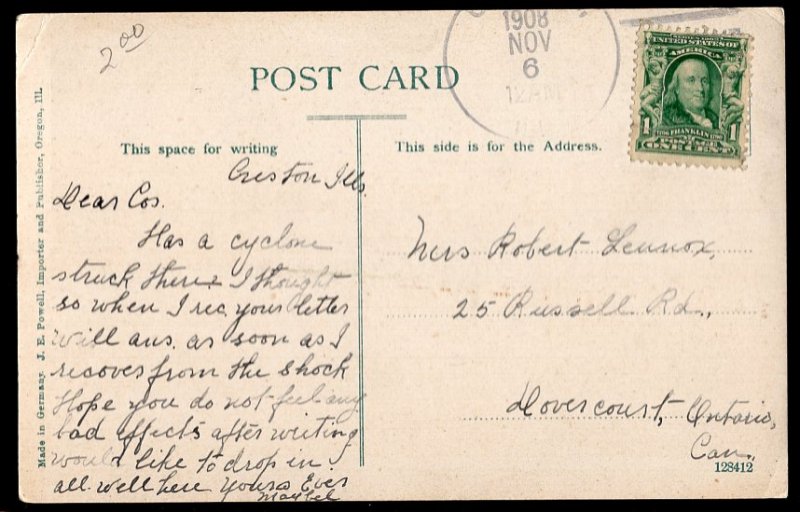 2.00
1908
NOV
6
12 AM
UNITED STATES OF
AMERICA
FRANKLIN
1 1
POST CARD
This space for writing
This side is for the Address.
Creston Ills.
Dear Cos.
Has a cyclone
struck there I thought
so when I rec. your letter
will ans. as soon as I
recover from the shock
Hope you do not feel any
bad effects after writing
would like to drop in.
all well here Yours Ever
Maybel
Mrs Robert Lennox,
25 Russell Rd.,
Dovercourt, Ontario,
Can.,
128412
Made in Germany. J. E. Powell, Importer and Publisher, Oregon, Ill.